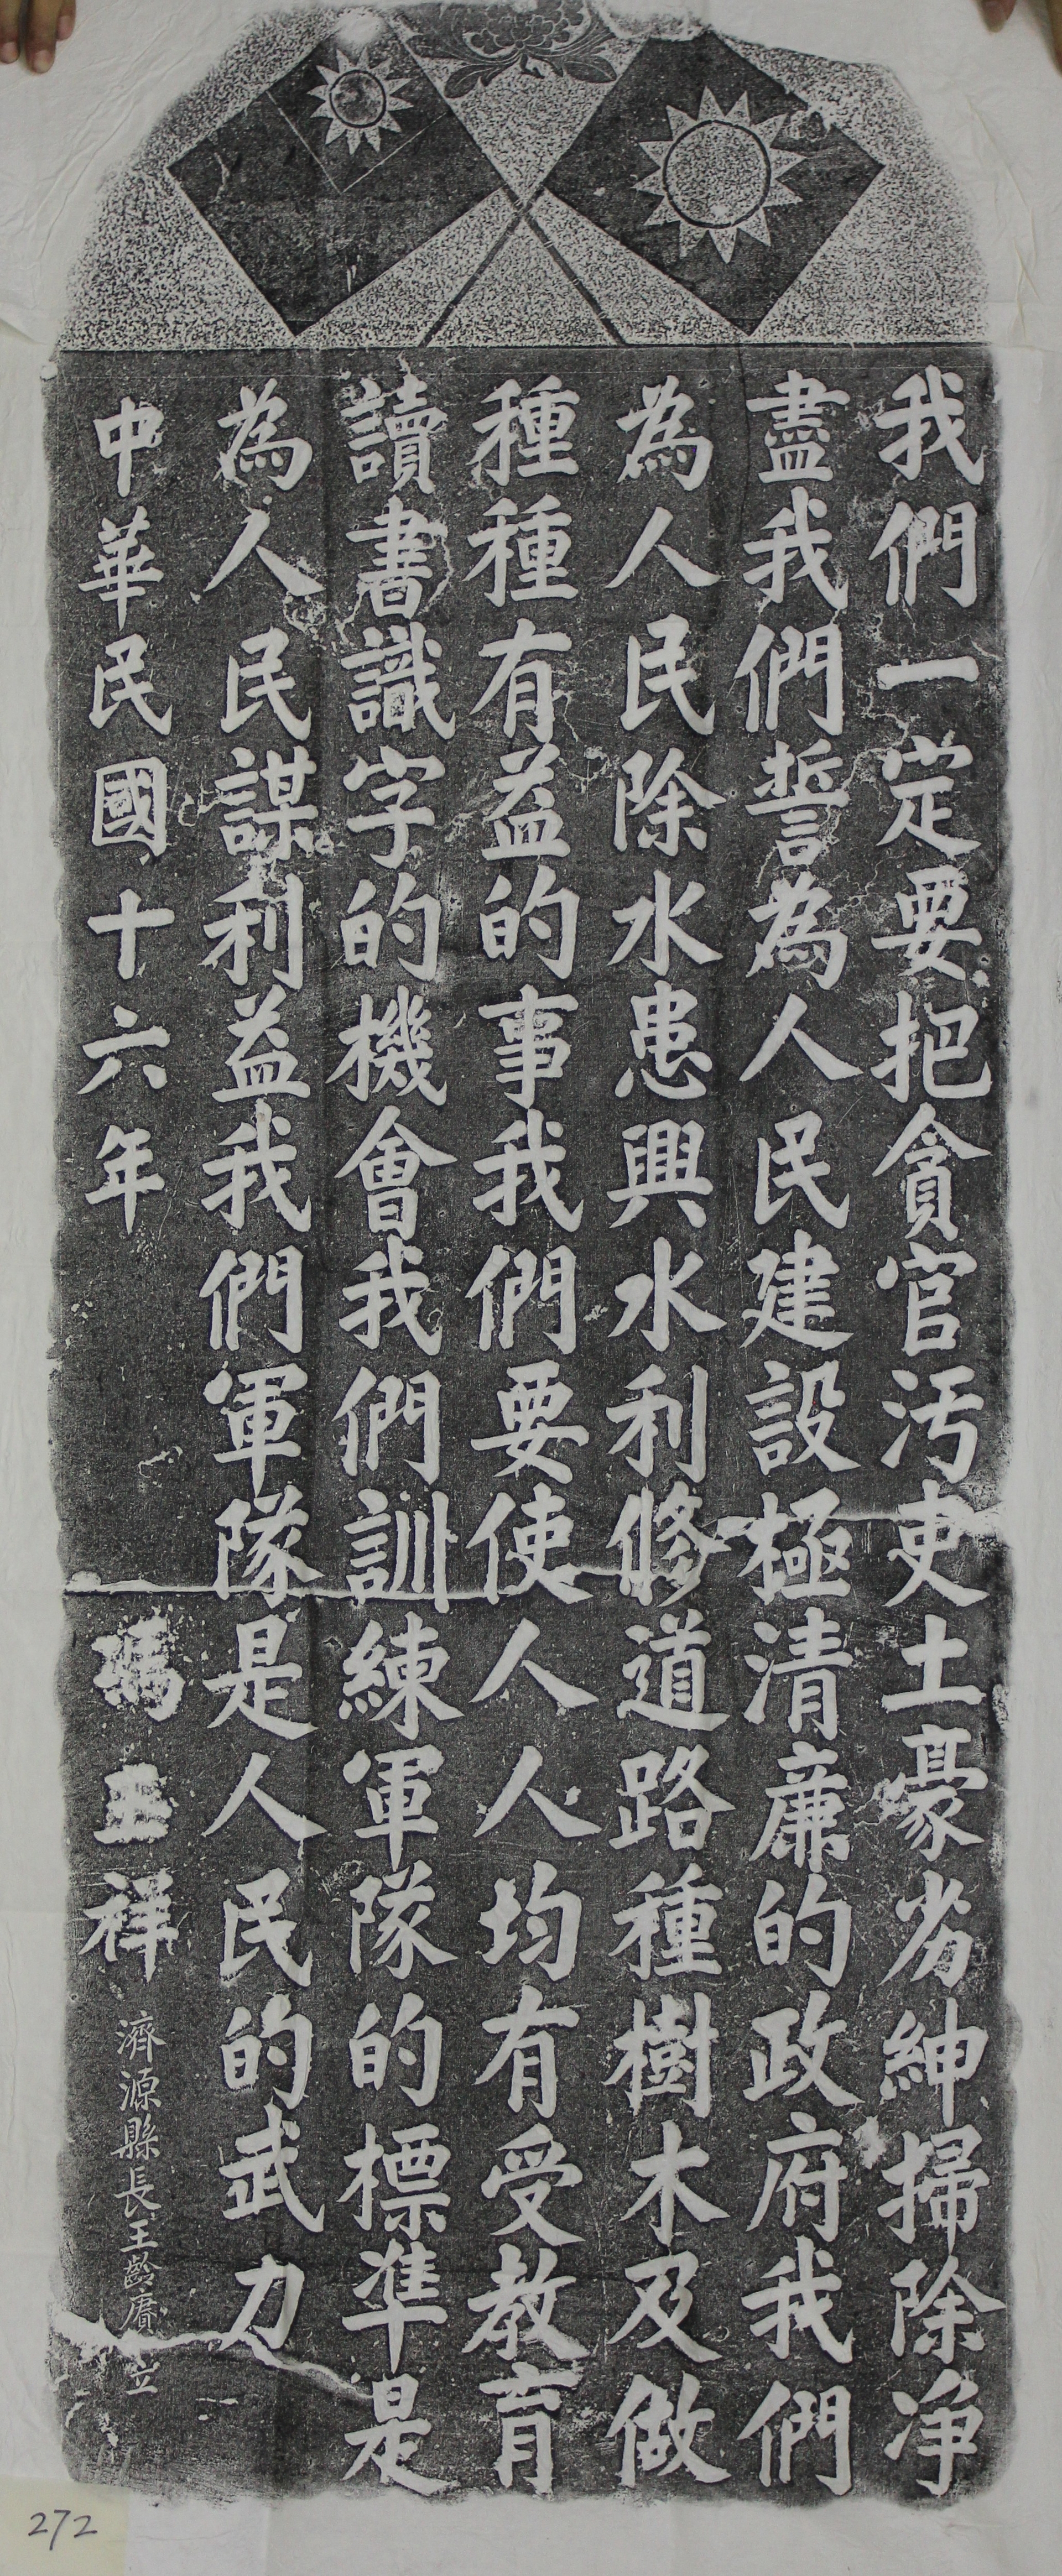 我們一定要把貪官汚吏土豪劣紳掃除净
盡我們誓為人民建設極清廉的政府我們
為人民除水患興水利修道路種樹木及做
種種有益的事我們要使人人均有受教育
讀書識字的機會我們訓練軍隊的標準是
為人民謀利益我們軍隊是人民的武力
中華民國十六年 馮玉祥 濟源縣長王齡賡立
272